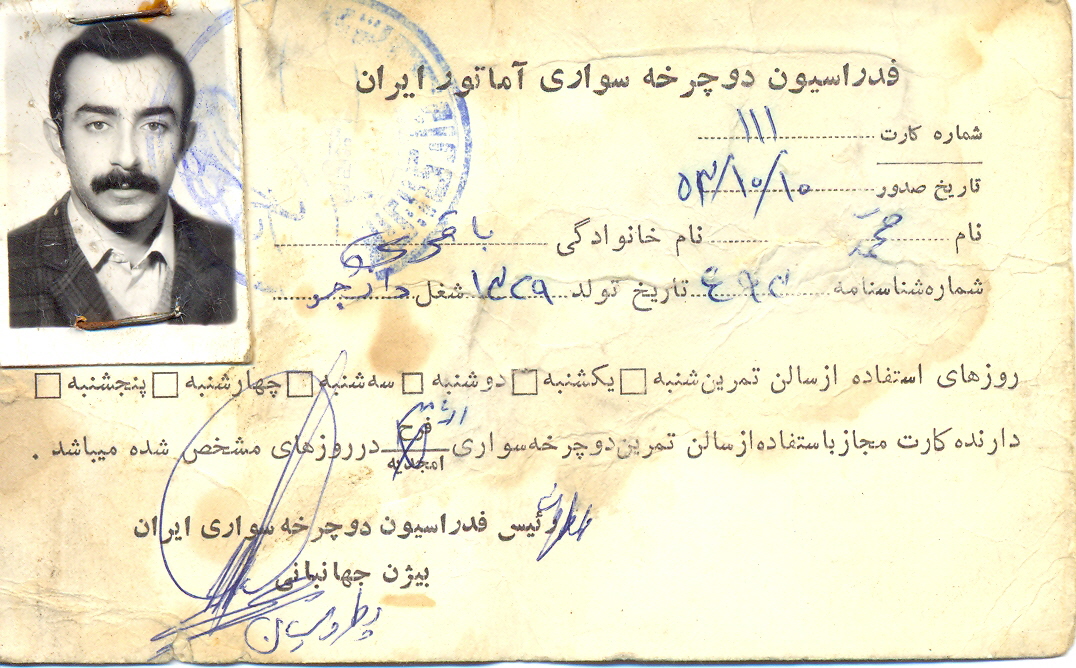 فدراسیون دوچرخه سواری آماتور ایران
شماره کارت ۱۱۱
تاریخ صدور ۵۳/۱۰/۱۰
نام نام خانوادگی
شماره شناسنامه تاریخ تولد ۱۳۲۹ شغل
روزهای استفاده از سالن تمرین شنبه □ یکشنبه □ دوشنبه □ سه شنبه □ چهارشنبه □ پنجشنبه □
دارنده کارت مجاز باستفاده از سالن تمرین دوچرخه سواری فرح امجدیه در روزهای مشخص شده میباشد .
رئیس فدراسیون دوچرخه سواری ایران
بیژن جهانبانی